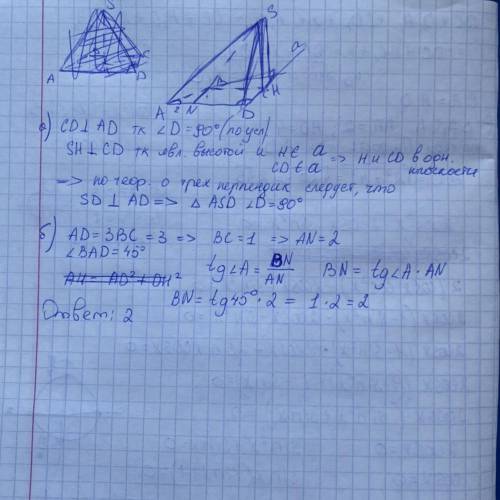 S
A
C
D
S
a
B
C
H
A 2 N
D
а) CD⊥AD тк ∠D=90° (по усл)
SH⊥CD тк явл. высотой и H∈a
CD∈a => H и CD в одн. плоскости
=> по теор. о трех перпендик следует, что
SD⊥AD => △ASD ∠D=90°
б) AD=3BC=3 => BC=1 => AN=2
∠BAD=45°
tg∠A = BN/AN BN = tg∠A·AN
AH = AD²+DH²
BN = tg45°·2 = 1·2 = 2
Ответ: 2